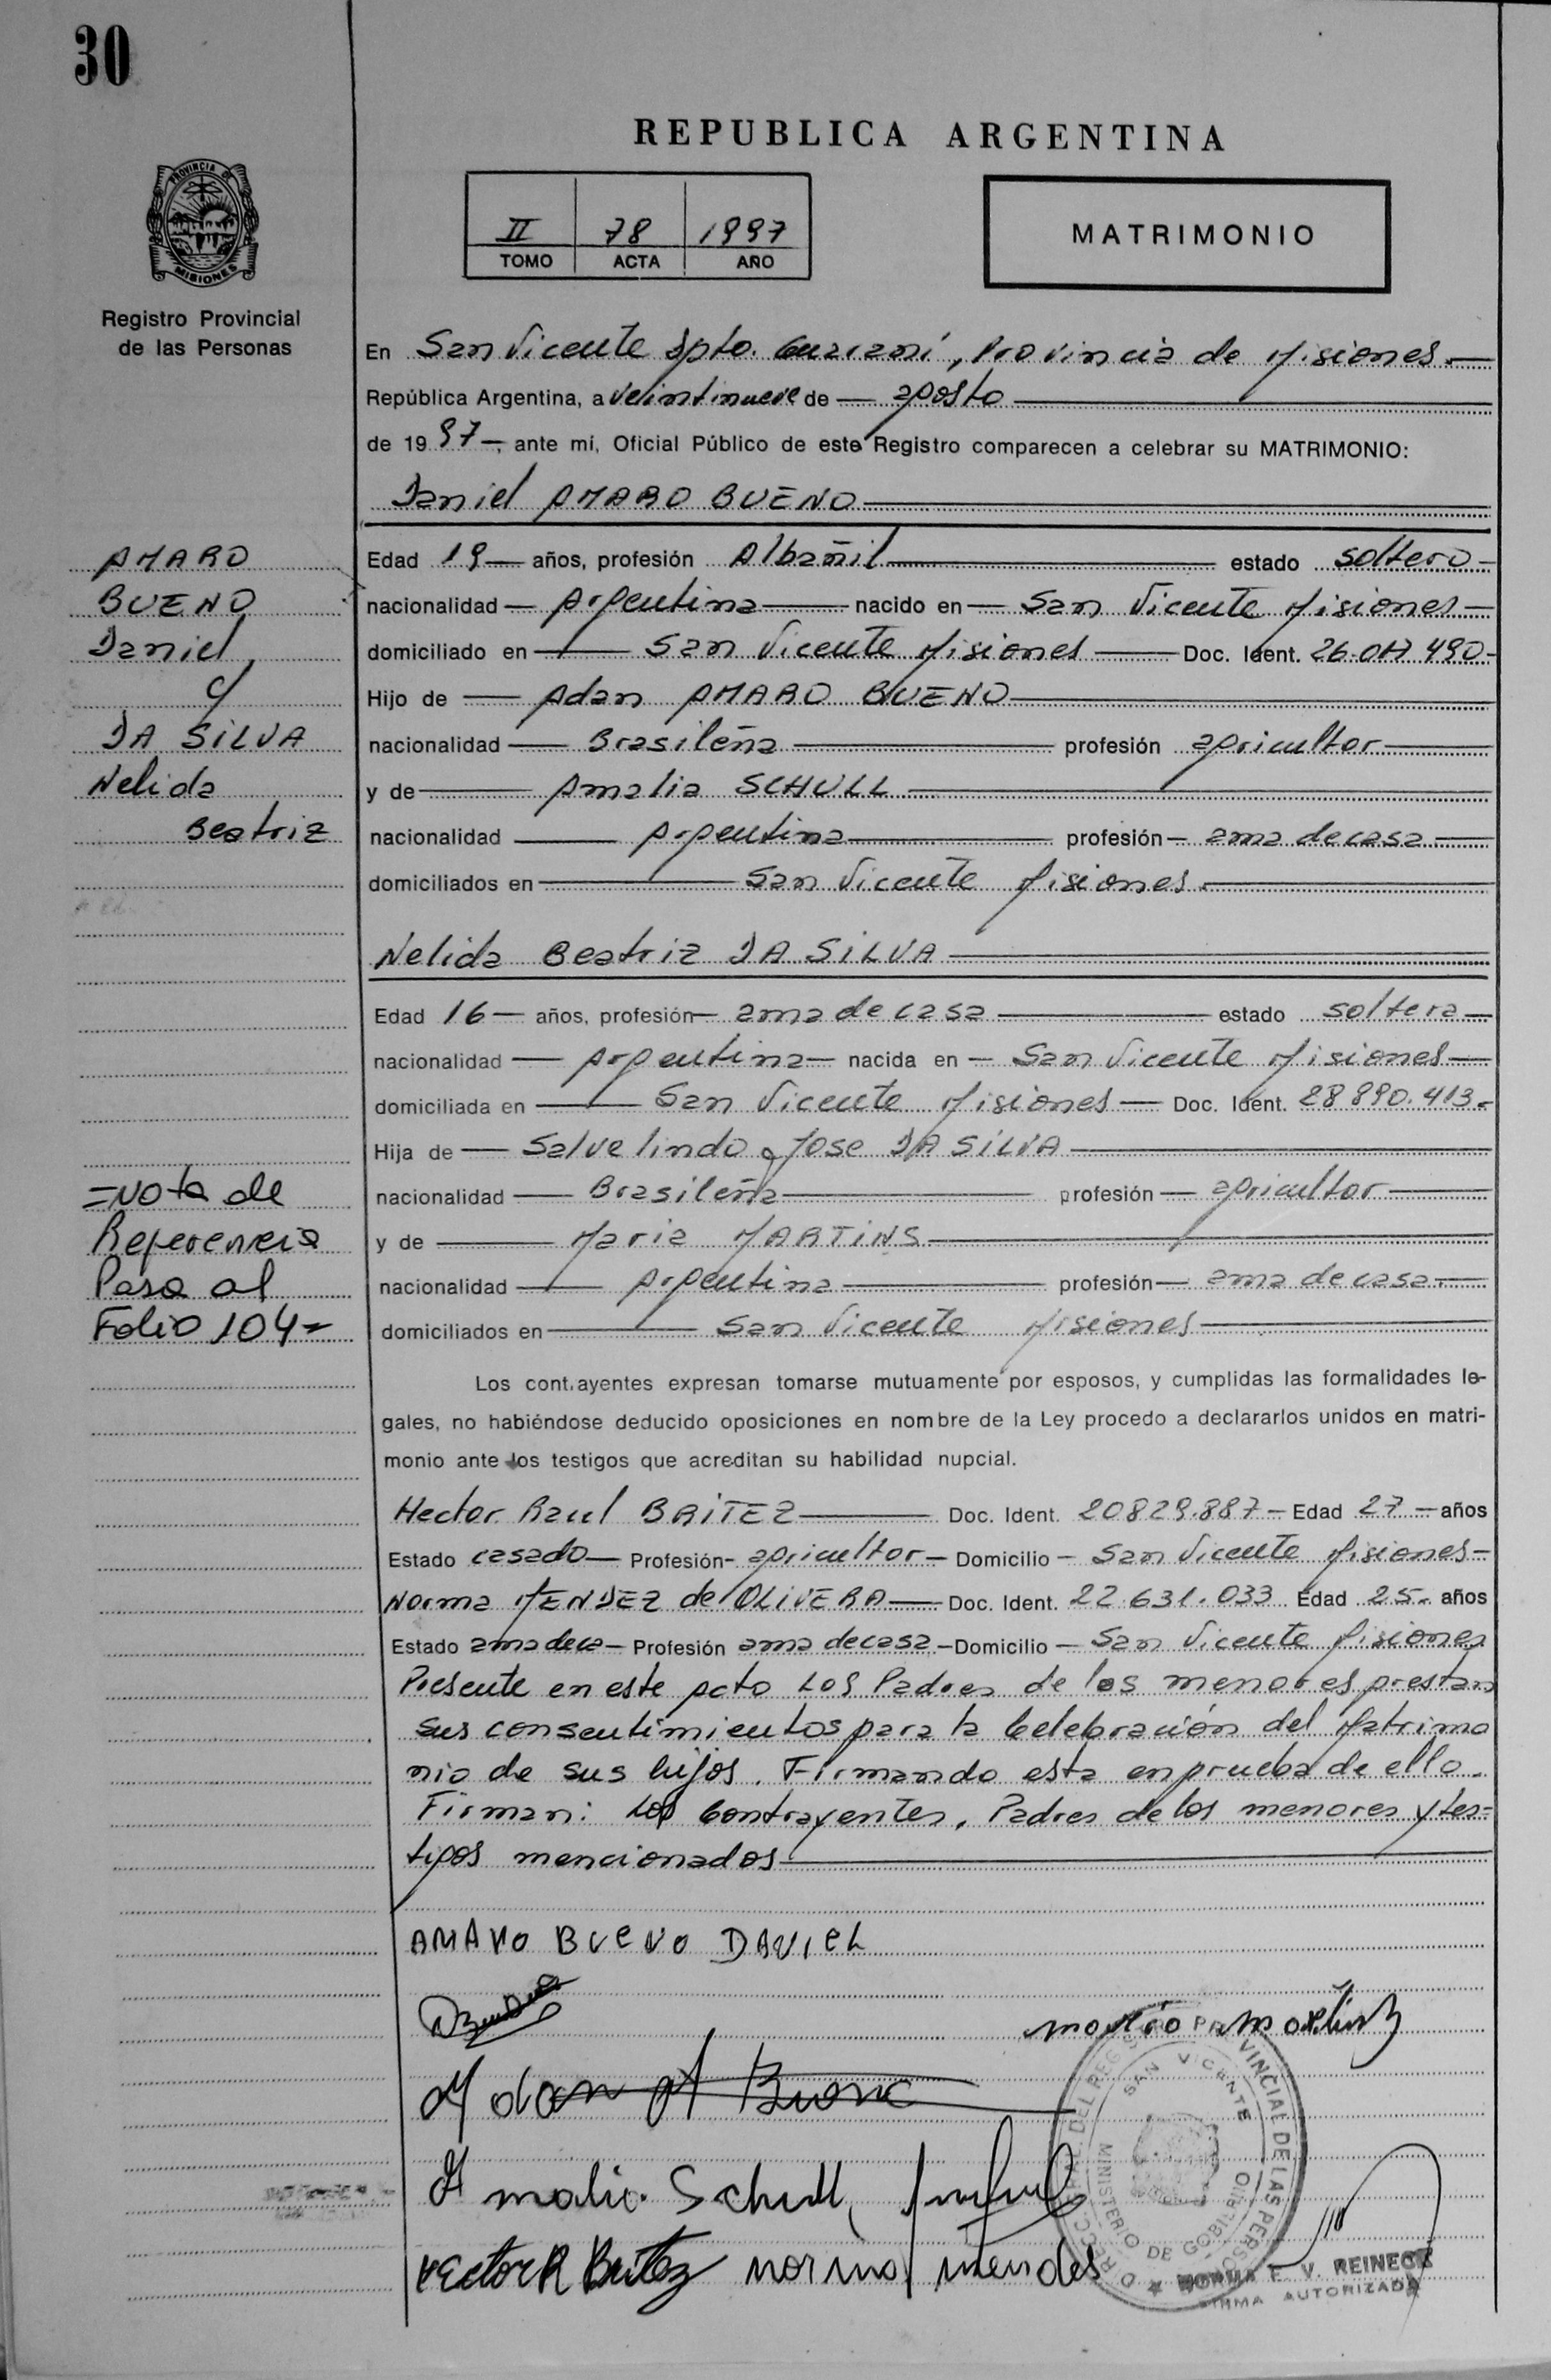 30
REPUBLICA ARGENTINA
PROVINCIA DE
MISIONES
Registro Provincial
de las Personas
II 78 1997
TOMO ACTA AÑO
MATRIMONIO
En San Vicente Dpto. Guaraní, Provincia de Misiones
República Argentina, a veintinueve de agosto
de 1997, ante mí, Oficial Público de este Registro comparecen a celebrar su MATRIMONIO:
Daniel AMARO BUENO
AMARO
BUENO
Daniel
c/
DA SILVA
Nelida
Beatriz
Edad 19 años, profesión Albañil estado soltero
nacionalidad Argentina nacido en San Vicente Misiones
domiciliado en San Vicente Misiones Doc. Ident. 26.017.490
Hijo de Adan AMARO BUENO
nacionalidad Brasileña profesión agricultor
y de Amalia SCHULL
nacionalidad Argentina profesión ama de casa
domiciliados en San Vicente Misiones
Nelida Beatriz DA SILVA
Edad 16 años, profesión ama de casa estado soltera
nacionalidad Argentina nacida en San Vicente Misiones
domiciliada en San Vicente Misiones Doc. Ident. 28890.413
Hija de Salvelindo Jose DA SILVA
nacionalidad Brasileña profesión agricultor
y de Maria MARTINS
nacionalidad Argentina profesión ama de casa
domiciliados en San Vicente Misiones
=Nota de
Referencia
Pasa al
Folio 104=
Los contrayentes expresan tomarse mutuamente por esposos, y cumplidas las formalidades le-
gales, no habiéndose deducido oposiciones en nombre de la Ley procedo a declararlos unidos en matri-
monio ante los testigos que acreditan su habilidad nupcial.
Hector Raul BRITEZ Doc. Ident. 20829.887 Edad 27 años
Estado casado Profesión agricultor Domicilio San Vicente Misiones
Norma MENDEZ de OLIVERA Doc. Ident. 22.631.033 Edad 25 años
Estado ama deca Profesión ama de casa Domicilio San Vicente Misiones
Presente en este Acto Los Padres de los menores prestan
sus consentimientos para la Celebración del Matrimo
nio de sus hijos. Firmando esta en prueba de ello.
Firman: Los Contrayentes, Padres de los menores y tes-
tigos mencionados
AMARO BUENO DANIEL
Adan A Bueno
Amalia Schull
Hector R Britez norma mendes
SAN VICENTE
MINISTERIO DE GOBIERNO
PROVINCIAL DE LAS PERSONAS
NORMA F. V. REINECK
FIRMA AUTORIZADA